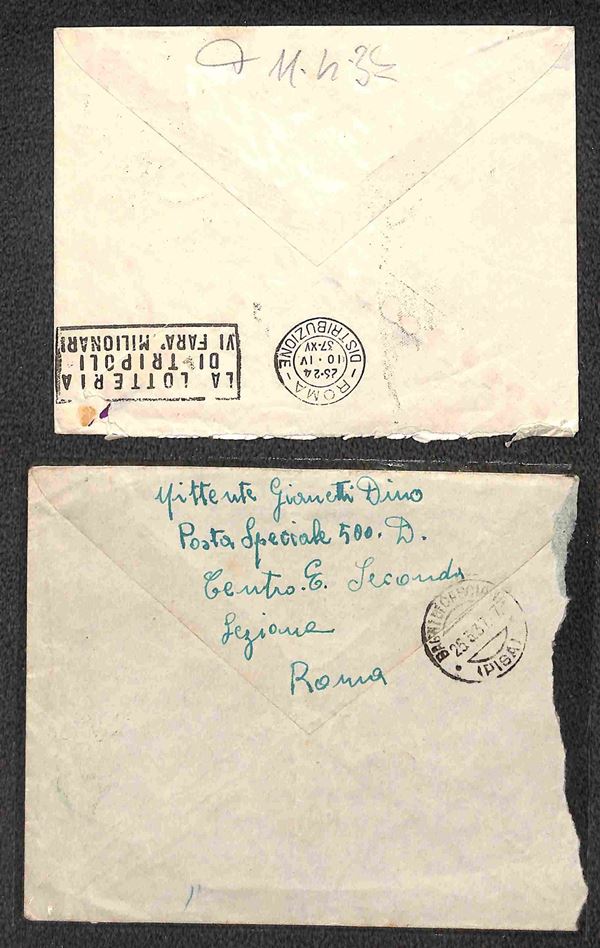 11.4.3
LA LOTTERIA
DI TRIPOLI
VI FARA' MILIONARI
ROMA
23-24
10·IV
37-XV
DISTRIBUZIONE
Mittente Gianetti Dino
Posta Speciale 500. D.
Centro. E. Seconda
Sezione
Roma
BAGNI DI CASCIANA
26.5.37.
(PISA)